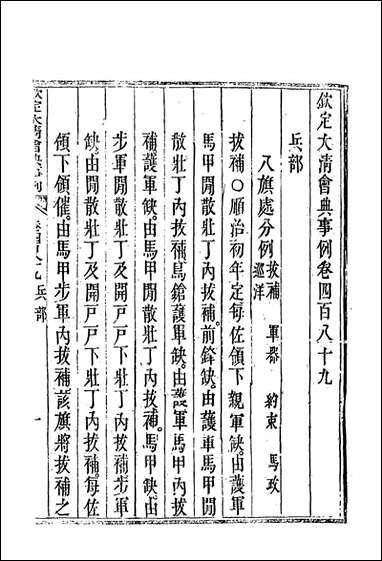 欽定大清會典事例卷四百八十九
兵部
八旗處分例 拔補 軍器 約束 馬政 巡洋
拔補○順治初年定每佐領下親軍缺由護軍
馬甲閒散壯丁內拔補前鋒缺由護軍馬甲閒
散壯丁內拔補鳥鎗護軍缺由護軍馬甲內拔
補護軍缺由馬甲閒散壯丁內拔補馬甲缺由
步軍閒散壯丁及開戶戶下壯丁內拔補步軍
缺由閒散壯丁及開戶戶下壯丁內拔補每佐
領下領催由馬甲步軍內拔補該旗將拔補之
欽定大清會典事例 卷四百八十九 兵部 一